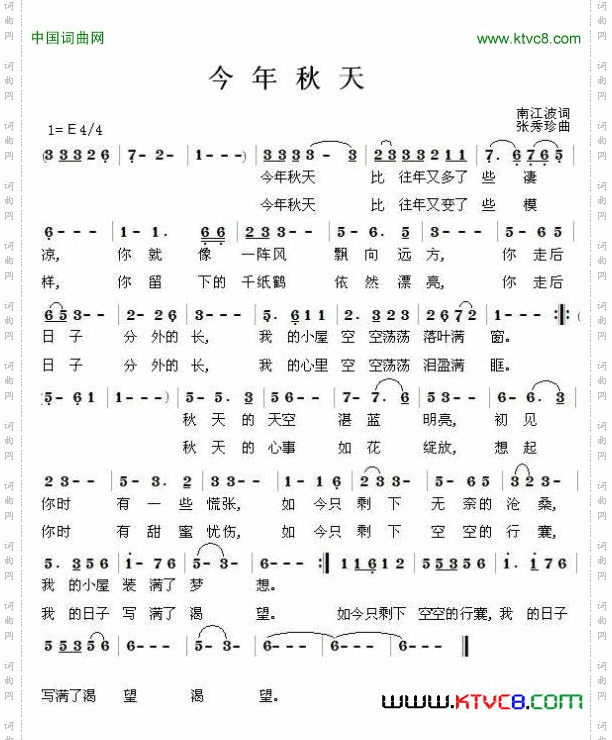 中国词曲网
www.ktvc8.com
今年秋天
南江波词
张秀珍曲
1=E4/4
(3 3 3 2 6 | 7- 2- | 1---) | 3 3 3 3 3- 3 | 2 3 3 3 2 1 1 | 7. 6 7 6 5 |
今年秋天 比 往年又多了 些 凄
今年秋天 比 往年又变了 些 模
6--- | 1-1. 6 6 | 2 3 3-- | 5-6. 5 | 3--- | 5-6 5 |
凉, 你 就 像 一阵风 飘 向 远 方, 你 走后
样, 你 留 下的 千纸鹤 依 然 漂 亮, 你 走后
6 5 3-- | 2-2 6 | 3--- | 5. 6 1 1 | 2. 3 2 3 | 2 6 7 2 | 1--- :‖: (
日 子 分 外的 长, 我 的小屋 空 空荡荡 落叶满 窗。
日 子 分 外的 长, 我 的心里 空 空荡荡 泪盈满 眶。
5-6 1 | 1---) | 5-5. 3 | 5 6-- | 7-7. 6 | 5 3-- | 6-6. 3 |
秋 天 的 天空 湛 蓝 明亮, 初 见
秋 天 的 心事 如 花 绽放, 想 起
2 3-- | 5-3. 2 | 3 3-- | 1-1 6 | 2 3 3- | 5-6 5 | 3 2 3- |
你时 有 一 些 慌张, 如 今只 剩 下 无 奈的 沧 桑,
你时 有 甜 蜜 忧伤, 如 今只 剩 下 空 空的 行 囊,
5. 3 5 6 | 1-7 6 | 5-3- | 6--- :‖ 1 1 6 1 2 | 5 5 3 5 6 | 1. 1 7 6 |
我 的小屋 装 满了 梦 想。
我 的日子 写 满了 渴 望。 如今只剩下 空空的行囊, 我 的日子
5 5 3 5 6 | 6--- | 5-3- | 6--- | 6--- | 6--- ‖
写满了渴 望 渴 望。
www.KTVC8.COM
词曲网